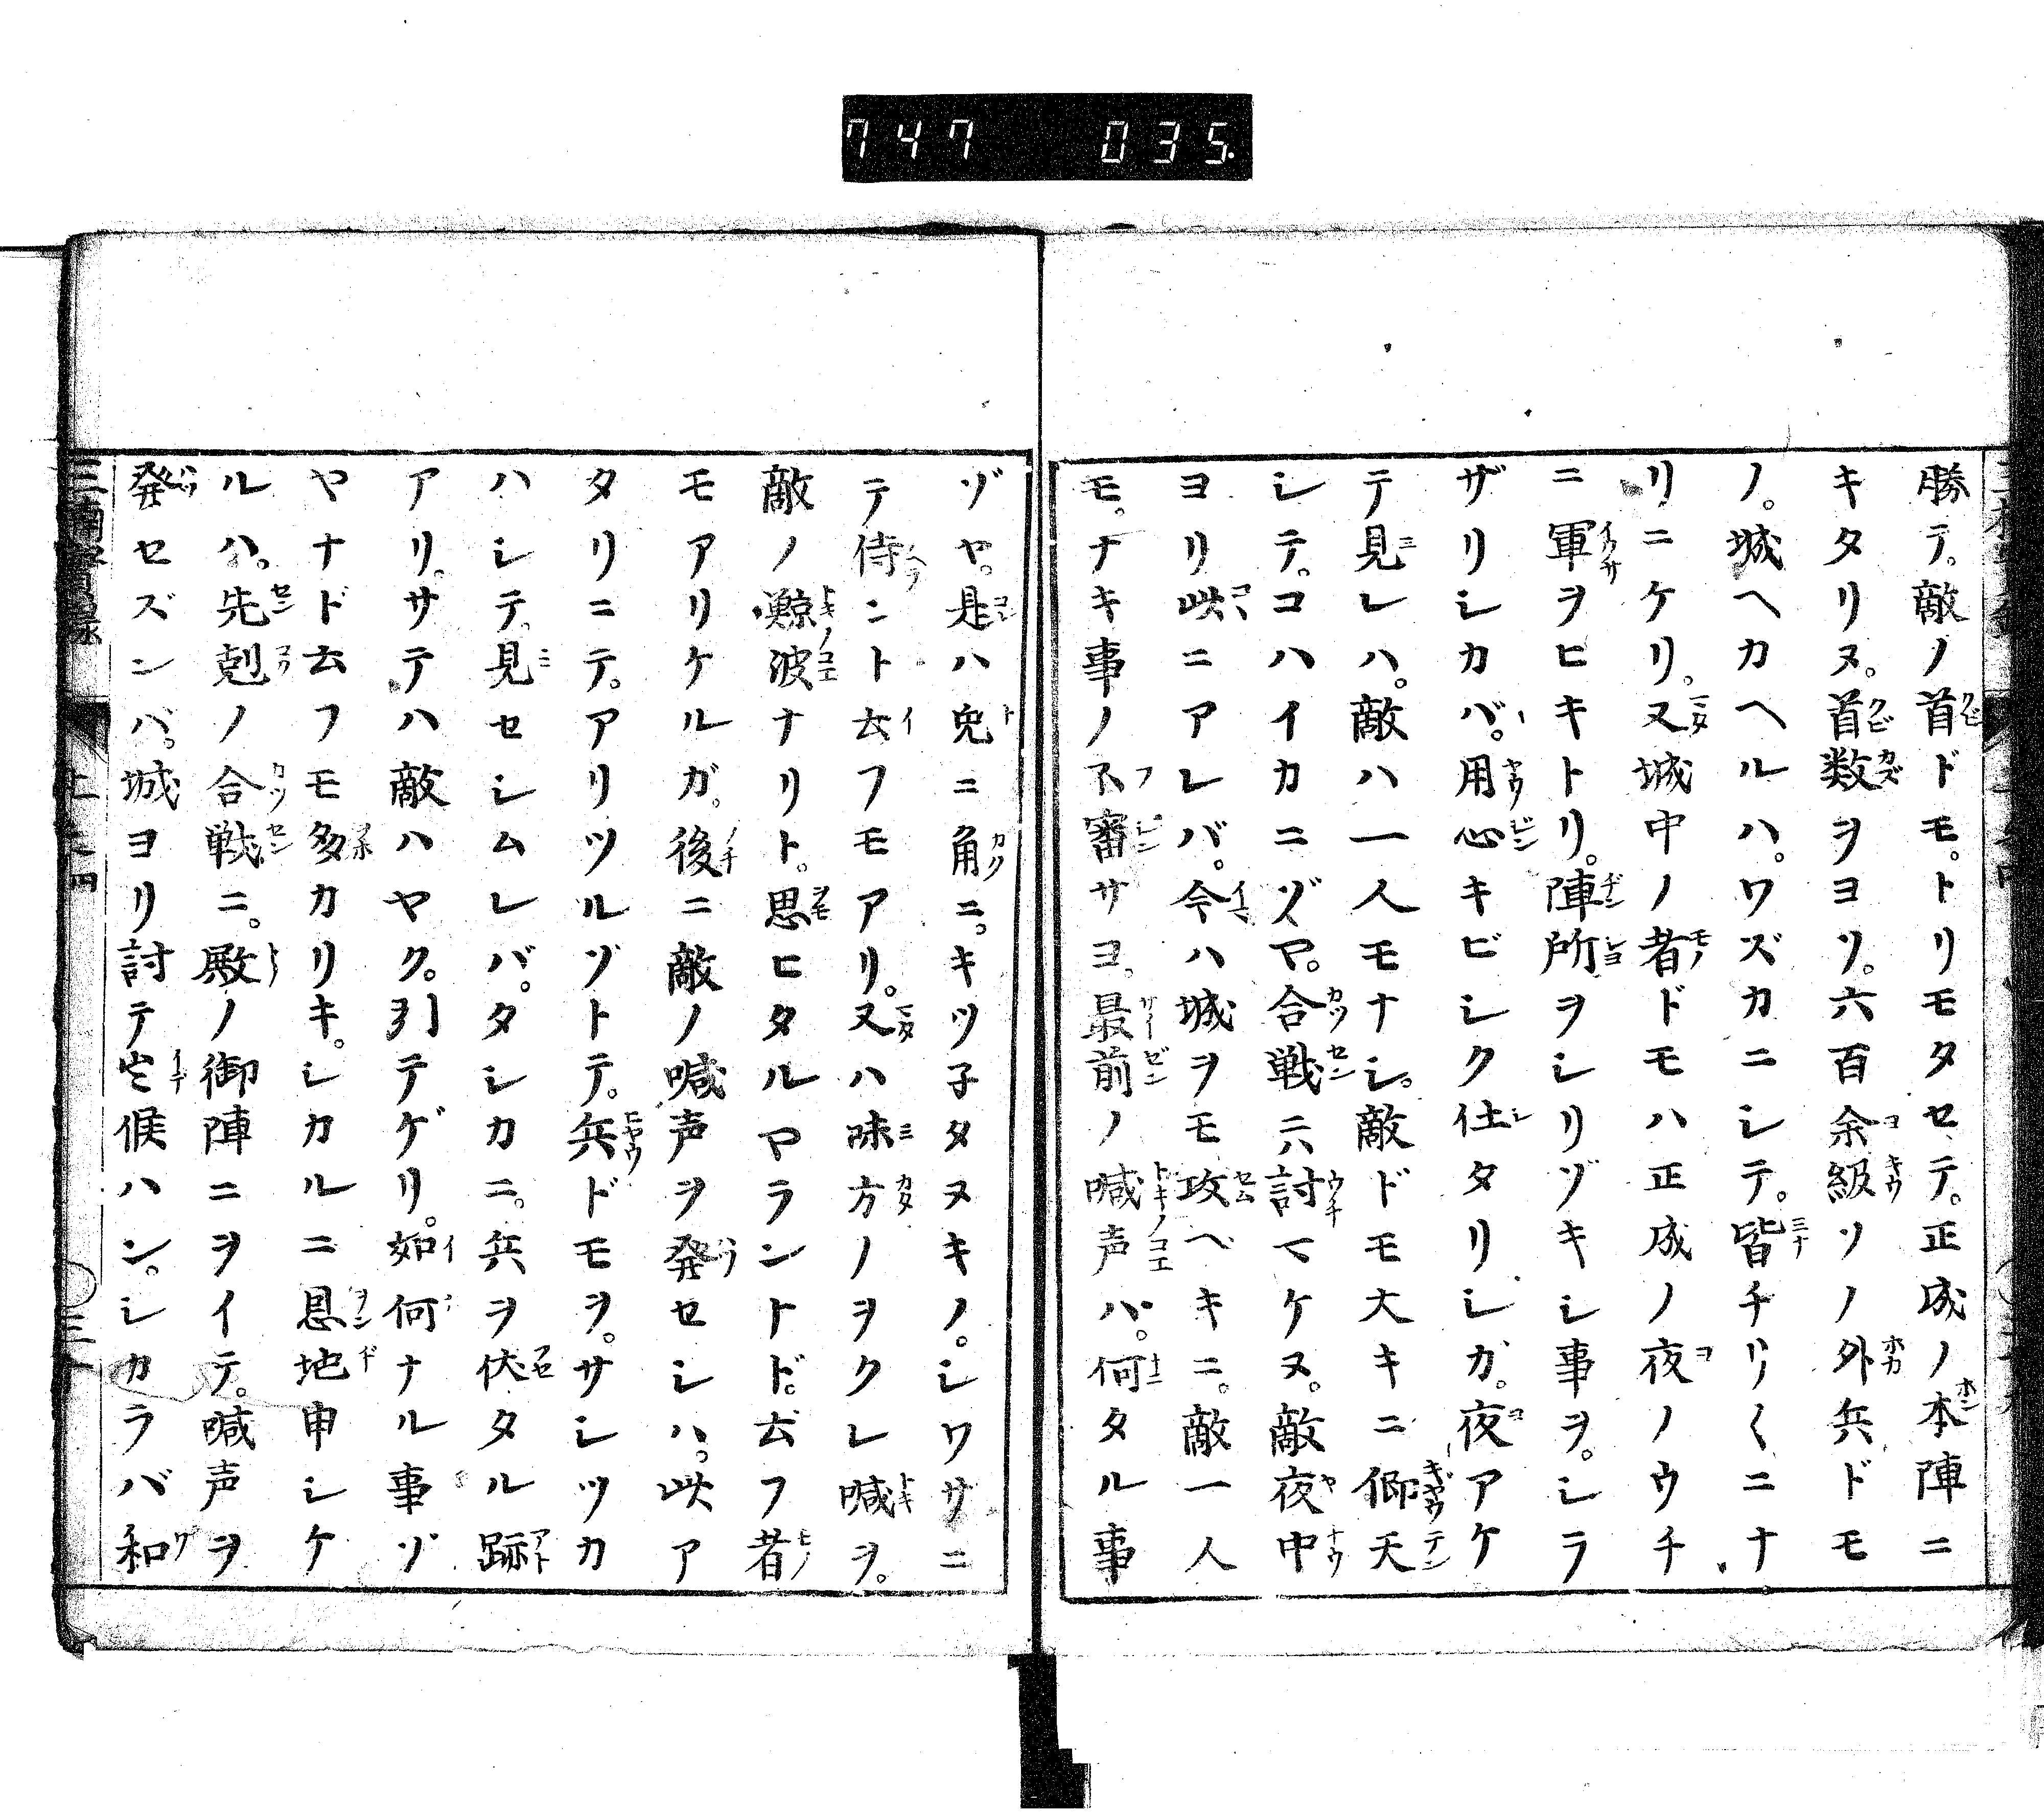 747 035.
勝テ。敵ノ首ドモ。トリモタセテ。正成ノ本陣ニ
キタリヌ。首数ヲヨソ。六百余級ソノ外兵ドモ
ノ。城ヘカヘルハ。ワズカニシテ。皆チリ〱ニナ
リニケリ。又城中ノ者ドモハ正成ノ夜ノウチ
ニ軍ヲヒキトリ。陣所ヲシリヅキシ事ヲ。シラ
ザリシカバ。用心キビシク仕タリシガ。夜アケ
テ見レハ。敵ハ一人モナシ。敵ドモ大キニ仰天
シテ。コハイカニゾヤ。合戦ニハ討マケヌ。敵夜中
ヨリ此ニアレバ。今ハ城ヲモ攻ベキニ。敵一人
モ。ナキ事ノ不審サヨ。最前ノ喊声ハ。何タル事
ゾヤ。是ハ兎ニ角ニ。キツ子タヌキノ。シワサニ
テ侍ント云フモアリ。又ハ味方ノヲクレ喊ヲ。
敵ノ鯨波ナリト。思ヒタルヤラントド。云フ者
モアリケルガ。後ニ敵ノ喊声ヲ発セシハ。此ア
タリニテ。アリツルゾトテ。兵ドモヲ。サシツカ
ハシテ。見セシムレバ。タシカニ。兵ヲ伏タル跡
アリ。サテハ敵ハヤク。引テゲリ。如何ナル事ゾ
ヤナド云フモ多カリキ。シカルニ恩地申シケ
ルハ。先剋ノ合戦ニ。殿ノ御陣ニヲイテ。喊声ヲ
発セズンバ。城ヨリ討テ出候ハン。シカラバ和